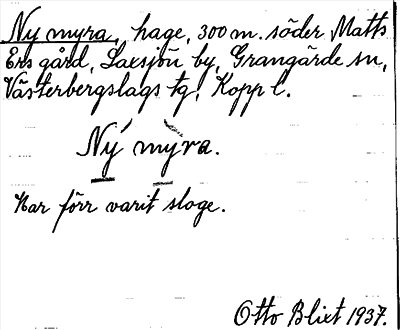 Ny myra, hage, 300 m. söder Matts
Ers gård, Laxsjön by, Grangärde sn,
Västerbergslags tg, Kopp l.
Ný mỳra.
Har förr varit sloge.
Otto Blixt 1937.